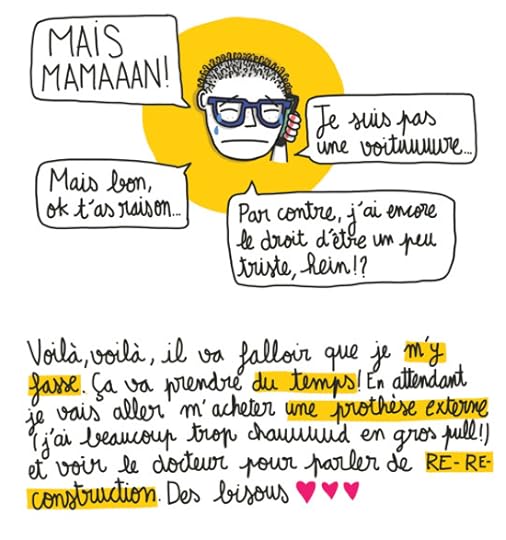 MAIS
MAMAAAN!
Je suis pas
une voituuuure...
Mais bon,
ok t'as raison...
Par contre, j'ai encore
le droit d'être un peu
triste, hein!?
Voilà, voilà, il va falloir que je m'y
fasse. Ça va prendre du temps! En attendant
je vais aller m'acheter une prothèse externe
(j'ai beaucoup trop chauuuuud en gros pull!)
et voir le docteur pour parler de RE-RE-
construction. Des bisous ♥♥♥